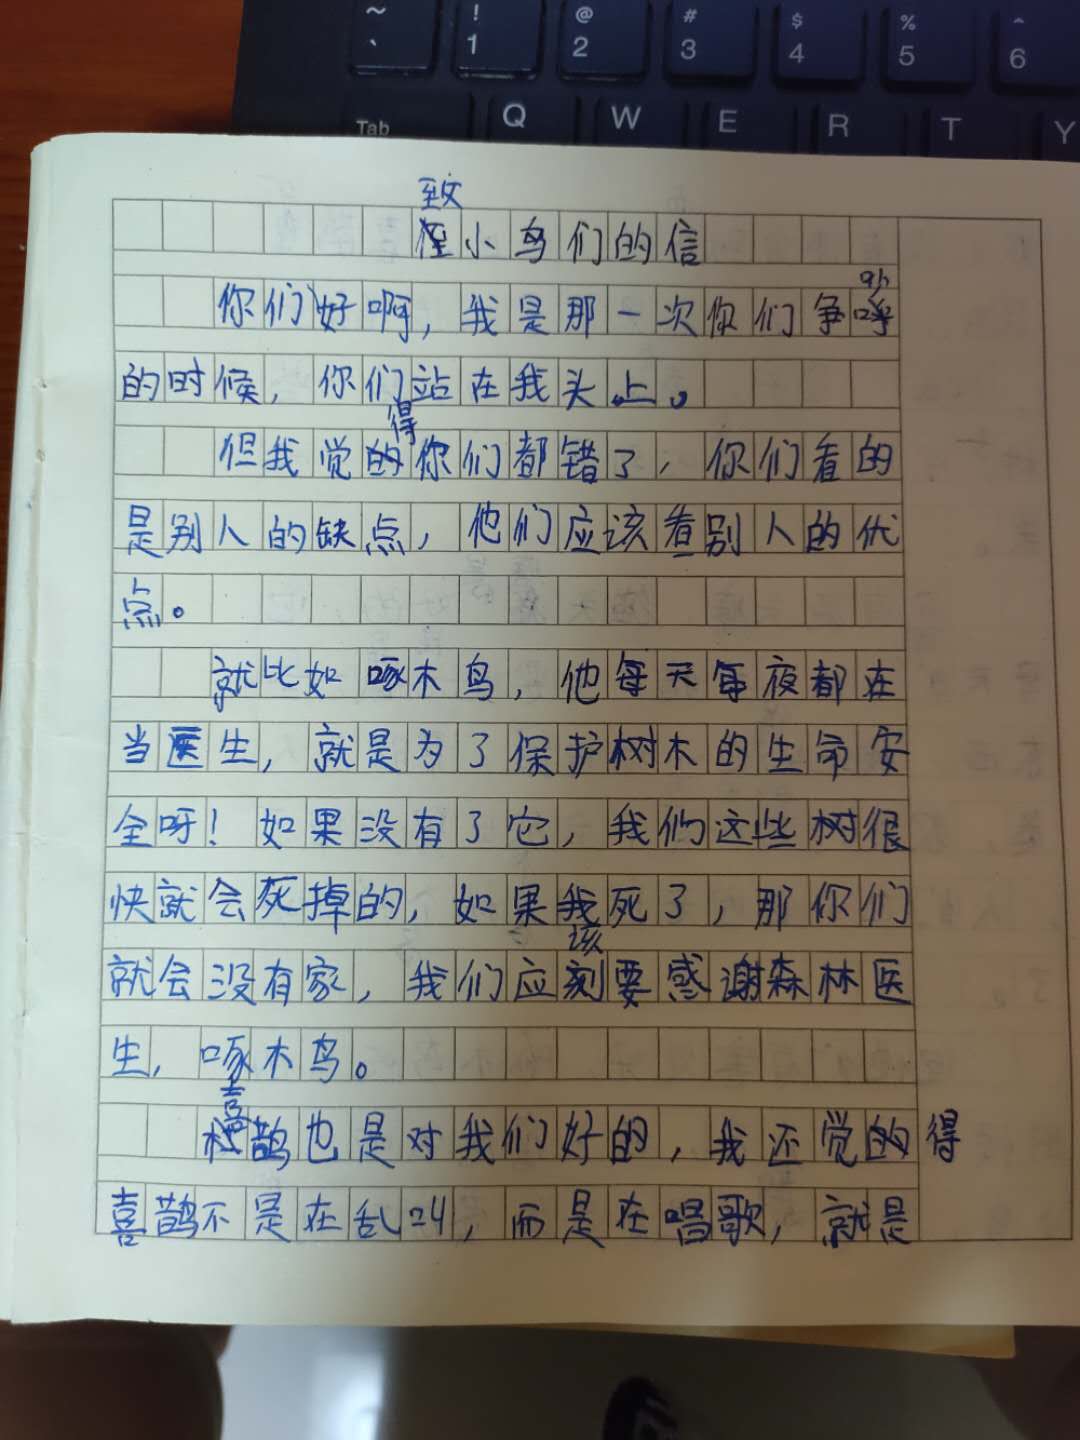 ~ ! @ # $ % ^
` 1 2 3 4 5 6
Tab Q W E R T Y
致
小鸟们的信
吵
你们好啊，我是那一次你们争
的时候，你们站在我头上。
得
但我觉的你们都错了，你们看的
是别人的缺点，他们应该看别人的优
点。
就比如啄木鸟，他每天每夜都在
当医生，就是为了保护树木的生命安
全呀！如果没有了它，我们这些树很
快就会死掉的，如果我死了，那你们
该
就会没有家，我们应刻要感谢森林医
生，啄木鸟。
喜
鹊也是对我们好的，我还觉的得
喜鹊不是在乱叫，而是在唱歌，就是